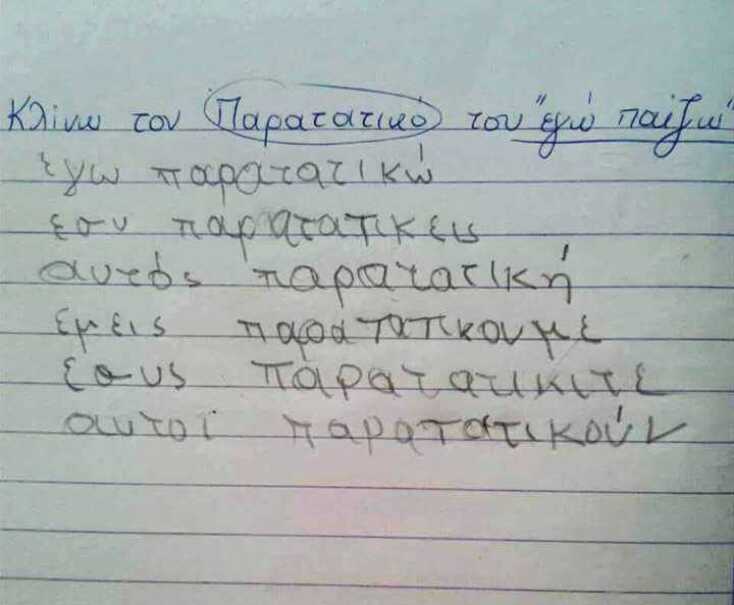 Κλίνω τον Παρατατικό του "εγώ παίζω"
έγω παρατατικώ
εσυ παρατατικεις
αυτός παρατατική
εμεις παρατατικουμε
εσυς παρατατικιτε
αυτοί παρατατικούν